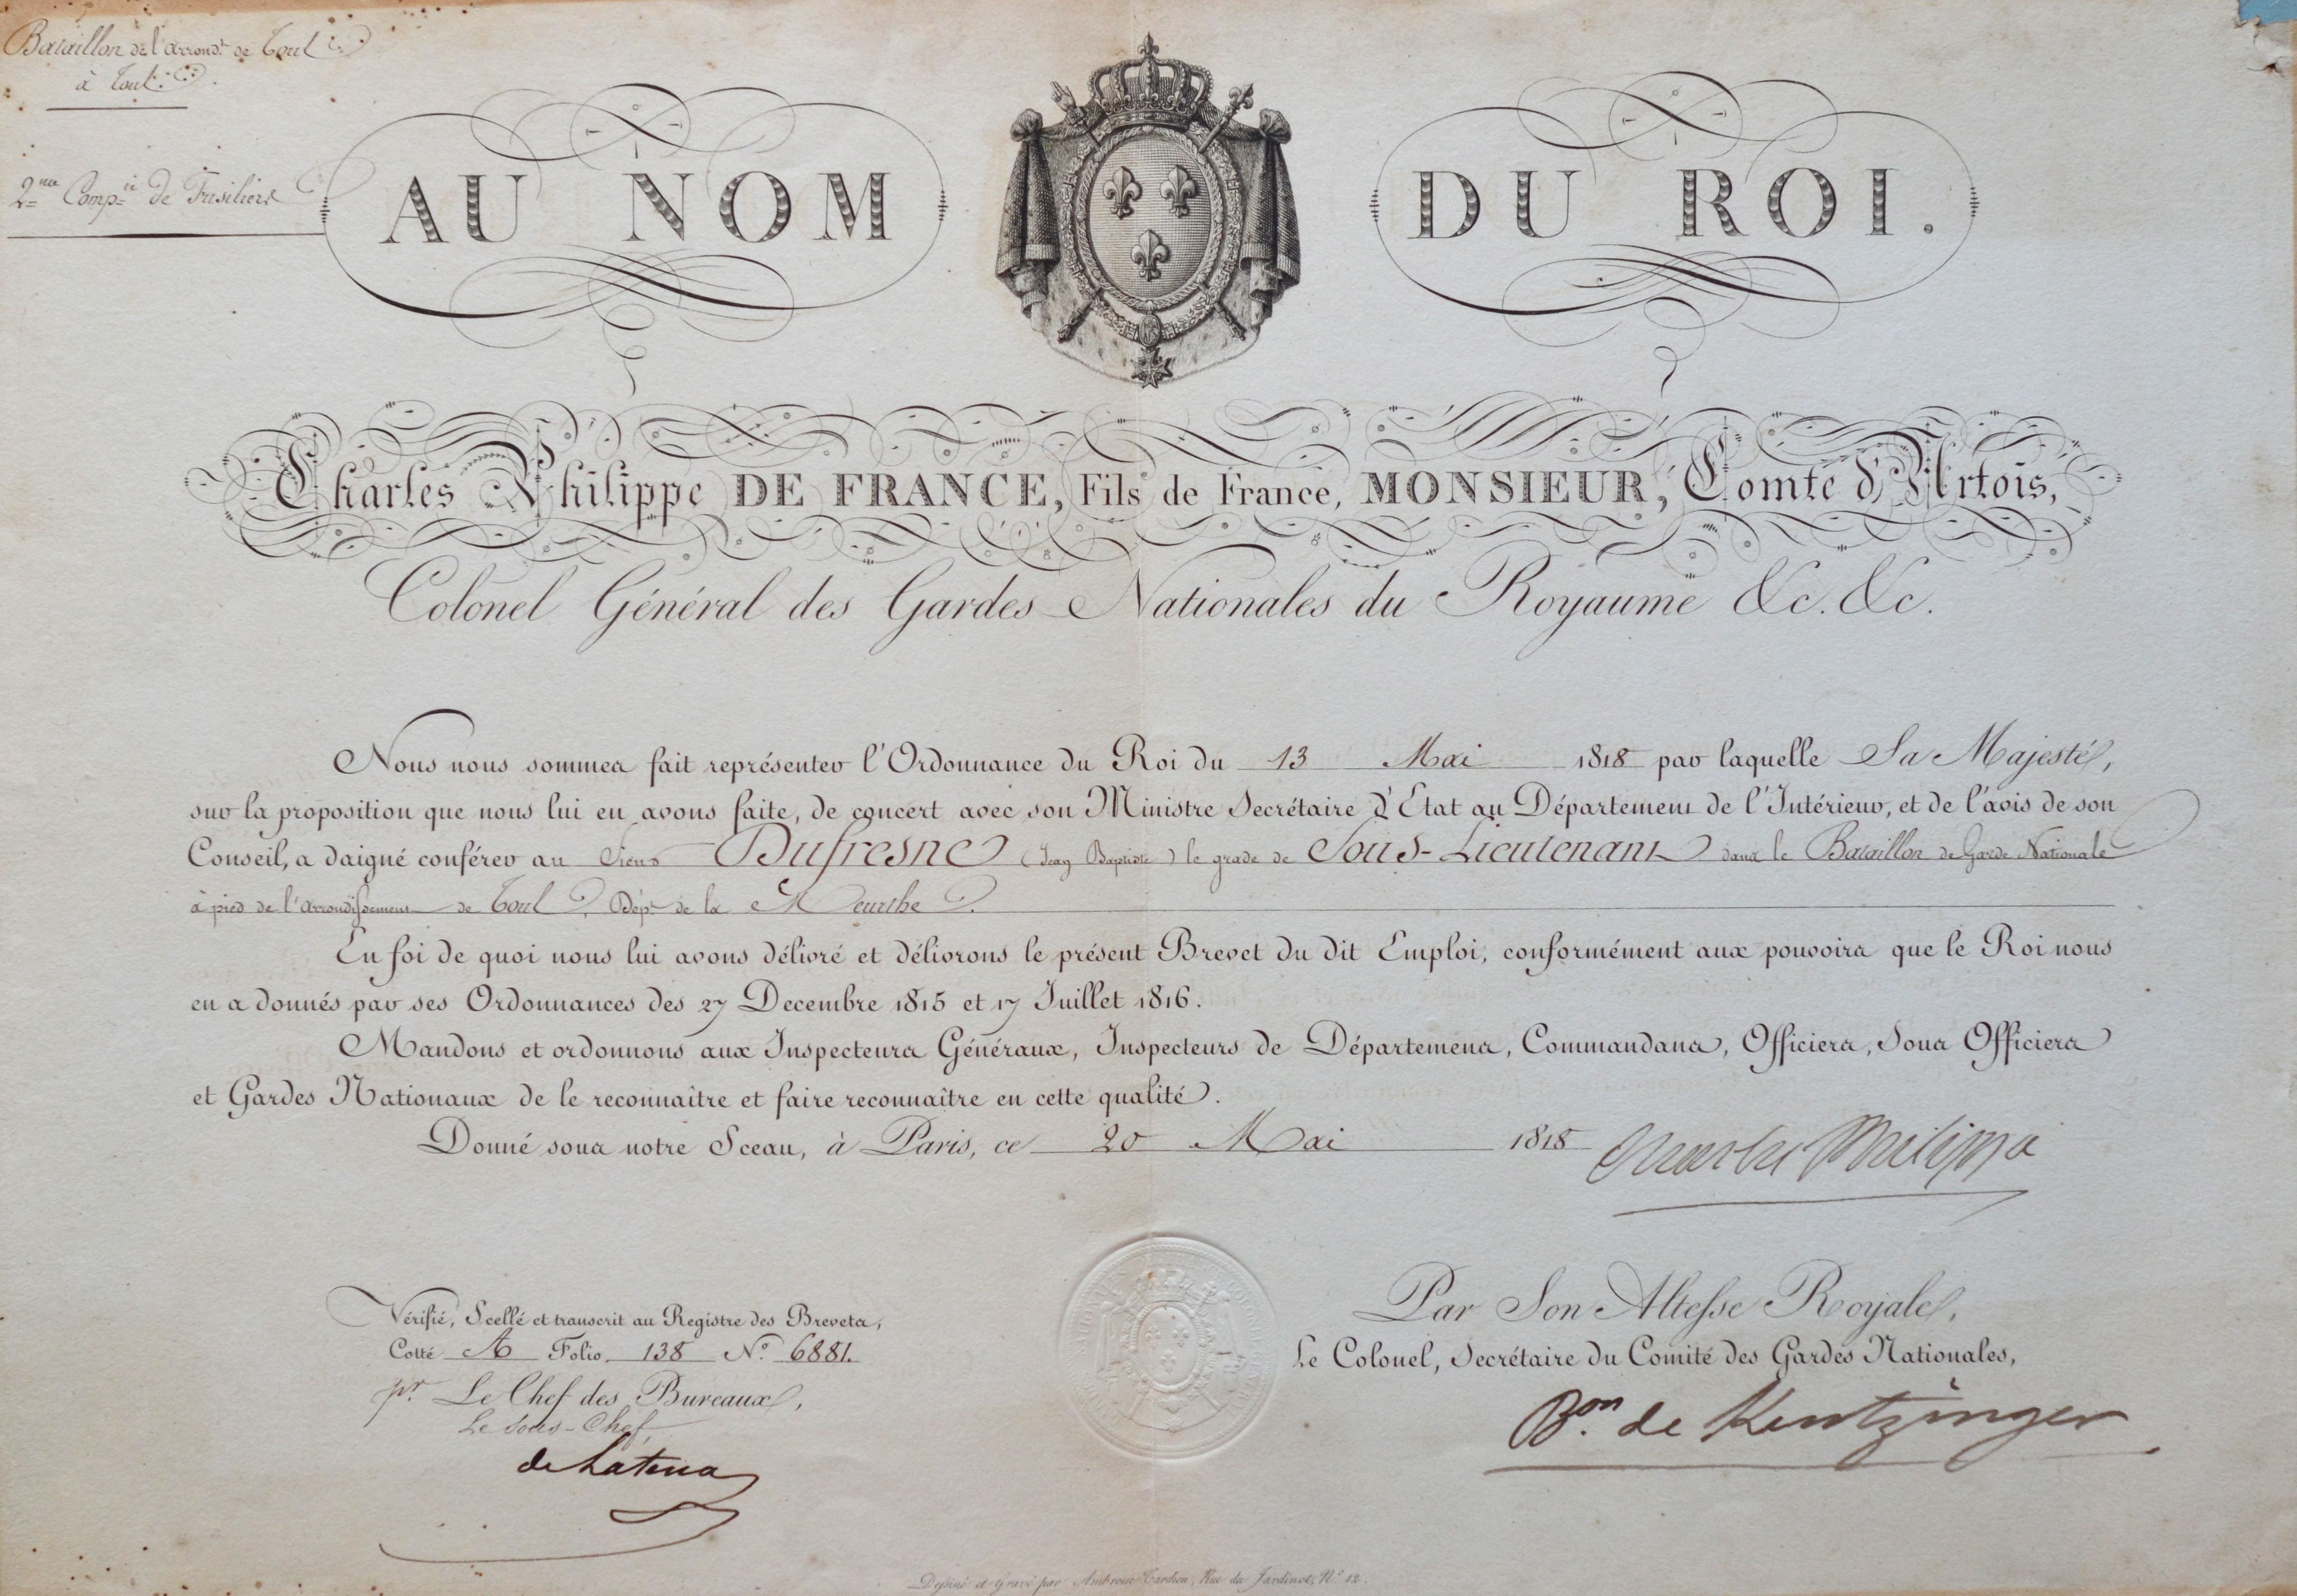 Bataillon de l'arrond.t de Toul
à Toul.
2.me Comp.ie de Fusiliers
AU NOM DU ROI.
Charles Philippe DE FRANCE, Fils de France, MONSIEUR, Comte d'Artois,
Colonel Général des Gardes Nationales du Royaume &c. &c.
Nous nous sommes fait représenter l'Ordonnance du Roi du 13 Mai 1818 par laquelle Sa Majesté,
sur la proposition que nous lui en avons faite, de concert avec son Ministre Secrétaire d'Etat au Département de l'Intérieur, et de l'avis de son
Conseil, a daigné conférer au Sieur Dufresne (Jean Baptiste) le grade de Sous-Lieutenant dans le Bataillon de Garde Nationale
à pied de l'arrondissement de Toul, Dép.t de la Meurthe.
En foi de quoi nous lui avons délivré et délivrons le présent Brevet du dit Emploi, conformément aux pouvoirs que le Roi nous
en a donnés par ses Ordonnances des 27 Decembre 1815 et 17 Juillet 1816.
Mandons et ordonnons aux Inspecteurs Généraux, Inspecteurs de Départemens, Commandans, Officiers, Sous Officiers
et Gardes Nationaux de le reconnaître et faire reconnaître en cette qualité.
Donné sous notre Sceau, à Paris, ce 20 Mai 1818
Charles Philippe
Vérifié, Scellé et transcrit au Registre des Brevets,
Cotté A Folio 138 N.o 6881.
p.r Le Chef des Bureaux,
Le Sous-Chef,
de Latena
Par Son Altesse Royale,
Le Colonel, Secrétaire du Comité des Gardes Nationales,
B.on de Kentzinger
Dessiné et Gravé par Ambroise Tardieu, Rue du Jardinet, N.o 12.